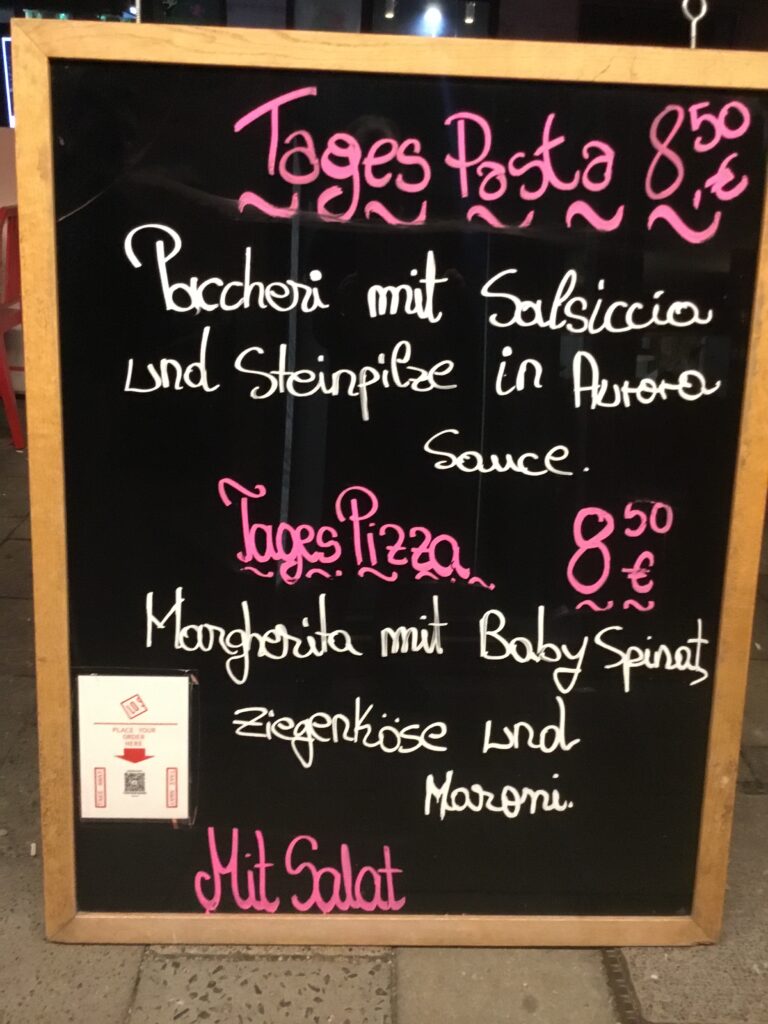 Tages Pasta 8,50 €
Paccheri mit Salsiccia
und Steinpilze in Aurora
Sauce.
Tages Pizza 8 50 €
Margherita mit Baby Spinat,
Ziegenköse und
Maroni.
PLACE YOUR
ORDER
HERE
Mit Salat